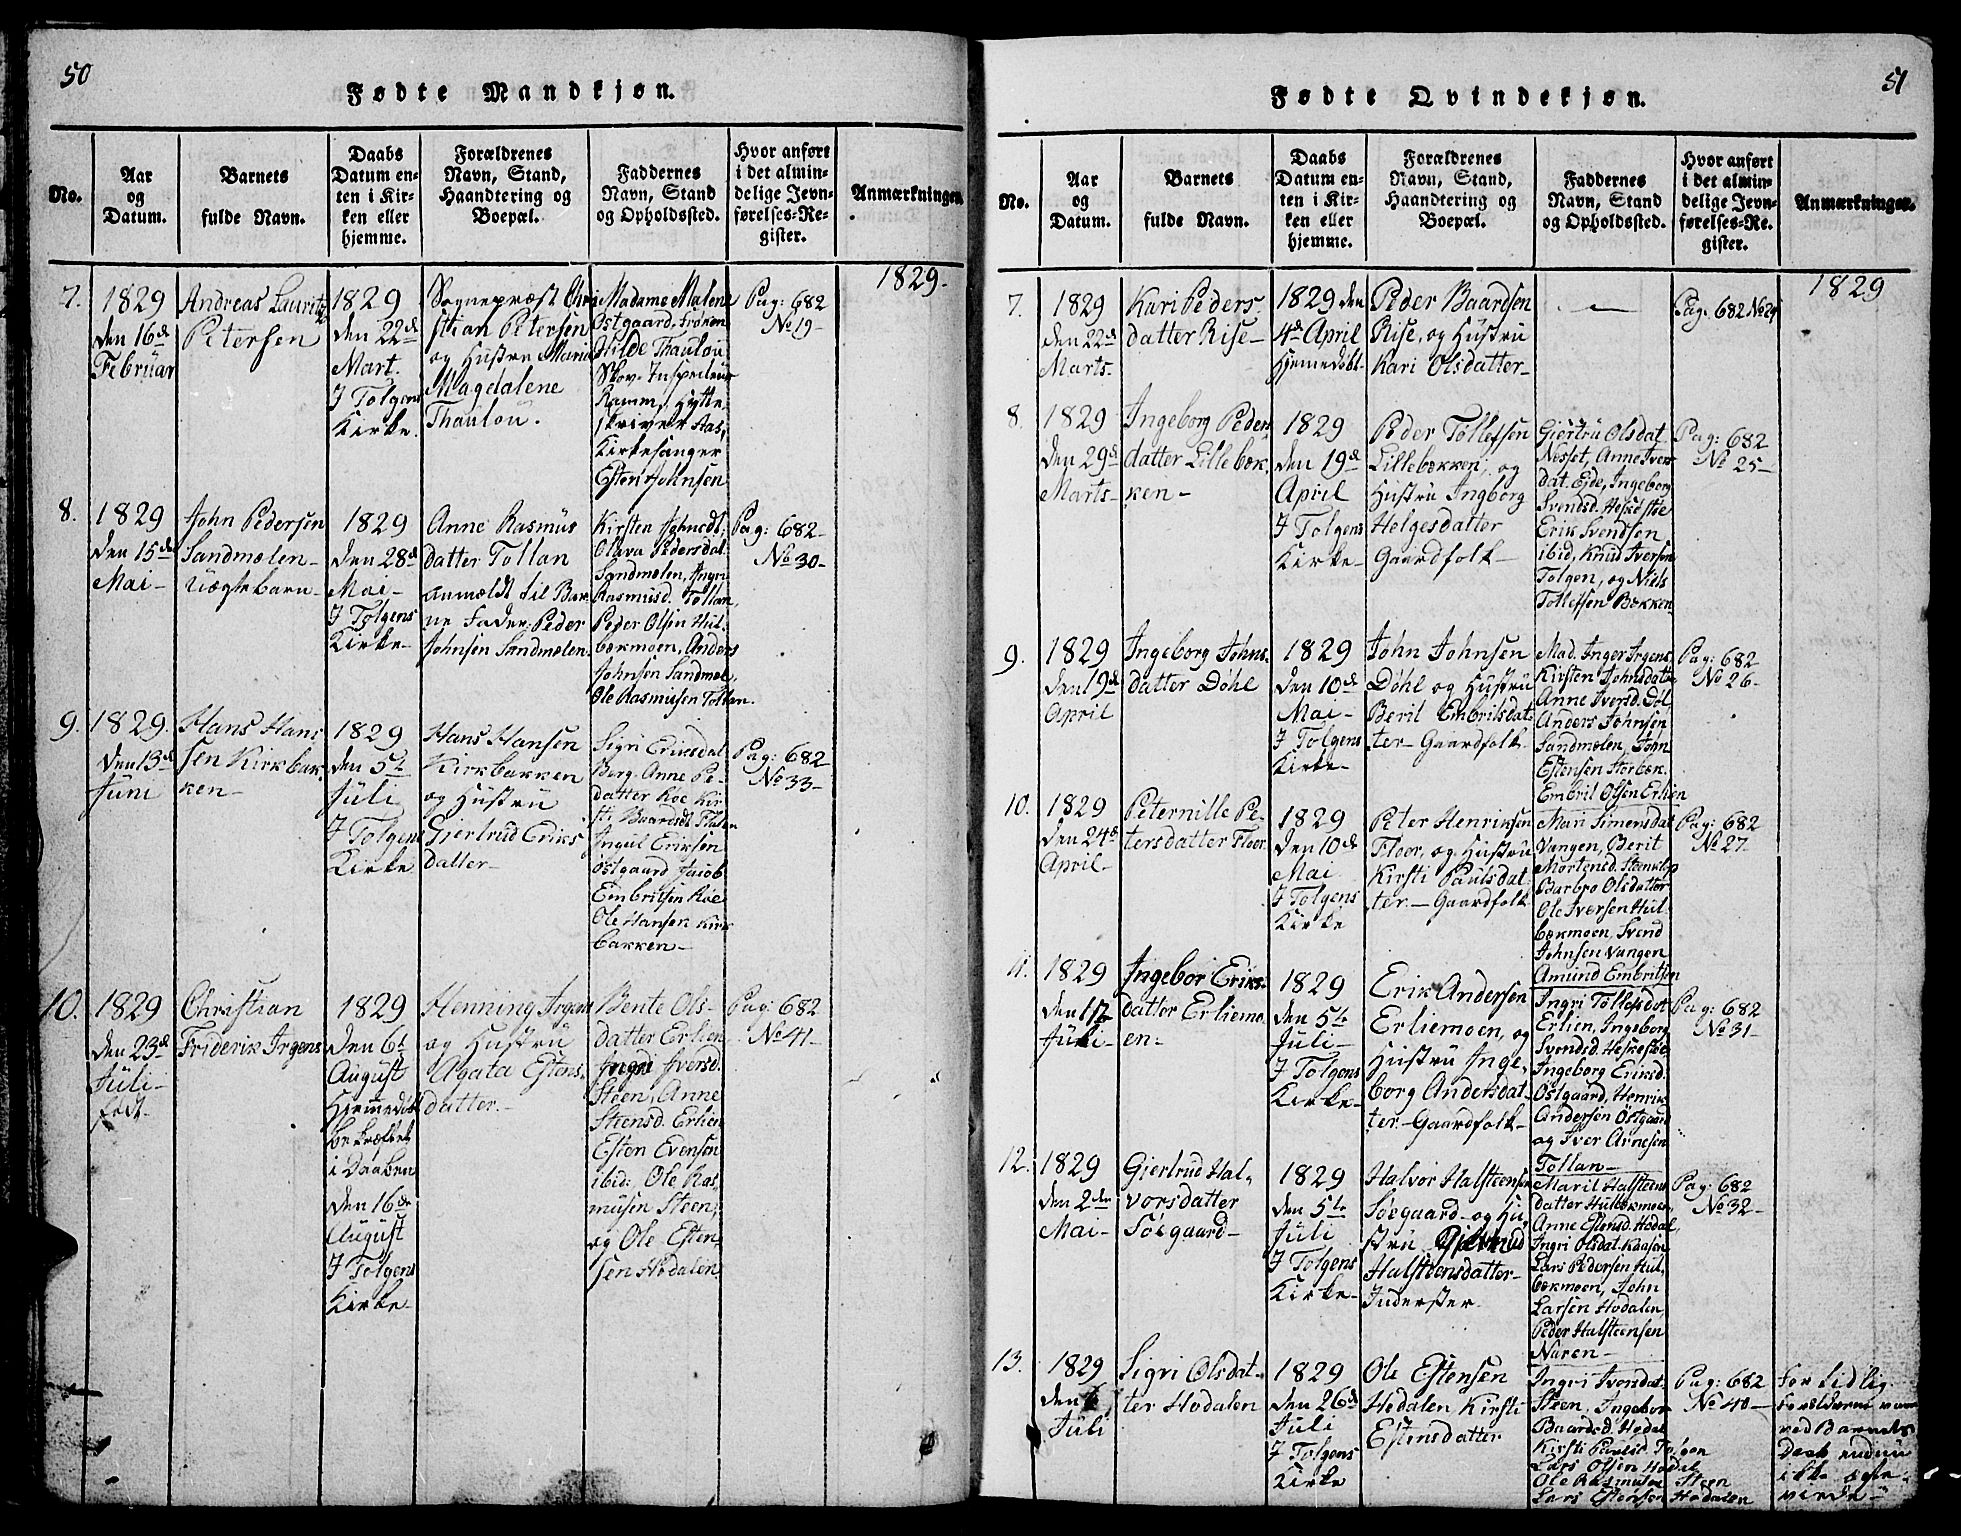 50
Fødte Mandkjøn.
No.
Aar
og
Datum.
Barnets
fulde Navn.
Daabs
Datum en-
ten i Kir-
ken eller
hjemme.
Forældrenes
Navn, Stand,
Haandtering og
Boepæl.
Faddernes
Navn, Stand
og Opholdssted.
Hvor anført
i det almin-
delige Jevn-
førelses-Re-
gister.
Anmærkninger.
1829.
7.
1829
den 16de
Februar
Andreas Lauritz
Petersen
1829
den 22de
Mart.
I Tolgens
Kirke.
Sognepræst Chri
stian Petersen
og Hustru Maria
Magdalene
Thaulou.
Madame Malene
Ostgaard, Frøken
Hilde Thaulou
Skov-Inspecteur
Ramm, Hytte
skriver Aas,
Kirkesanger
Esten Johnsen
Pag: 682
No 19-
8.
1829
den 15de
Mai-
John Pedersen
Sandmolen-
Uægte barn-
1829
den 28de
Mai-
I Tolgens
Kirke-
Anne Rasmus
datter Tollan
anmeldt til Bar
ne Fader: Peder
Johnsen Sandmolen.
Kirsten Johnsdt.
Olava Pedersdat.
Sandmolen, Ingri
Rasmusd. Tollan,
Peder Olsen Hul-
bækmoen, Anders
Johnsen Sandmol,
Ole Rasmusen Tollan.
Pag: 682-
No 30-
9.
1829.
den 13de
Juni
Hans Han-
sen Kirkbak
ken-
1829
den 5te
Juli
I Tolgens
Kirke
Hans Hansen
Kirkbakken
og Hustru
Gjertrud Eriks
datter-
Sigri Ericsdat
Berg. Anne Pe-
datter Koe Kir-
sti Baardsdt
Ingul Eriksen
Ostgaard Jacob
Embritsen Koe
Ole Hansen Kirk
bakken-
Pag: 682
No 33-
10.
1829
den 23de
Juli-
født-
Christian
Friderik Irgens
1829
den 6te
August
Hjemmedøbt
bekræftet
i Daaben
den 16de
August
I Tolgens
Kirke-
Henning Irgens
og Hustru
Agata Estens-
datter-
Bente Ols-
datter Erlien
Ingri Iversd.
Steen, Anne
Steensd. Erlien
Esten Evensen
ibid:, Ole Ras,
musen Steen,
og Ole Esten,
sen Hodalen.
Pag: 682
No 41-
51
Fødte Qvindekjøn.
No.
Aar
og
Datum.
Barnets
fulde Navn.
Daabs
Datum en-
ten i Kir-
ken eller
hjemme.
Forældrenes
Navn, Stand,
Haandtering og
Boepæl.
Faddernes
Navn, Stand
og Opholdssted.
Hvor anført
i det almin-
delige Jevn-
førelses-Re-
gister.
Anmærkninger.
1829
7.
1829
den 22de
Marts-
Kari Peders-
datter Rise-
1829 den
4de April
Hjemedøbt-
Peder Baardsen
Rise, og Hustru
Kari Olsdatter-
Pag: 682 No 24
8.
1829
den 29de
Marts-
Ingeborg Peders
datter Lillebæk,
ken-
1829
den 19de
April
I Tolgens
Kirke-
Peder Tollefsen
Lillebækken, og
Hustru Ingborg
Helgesdatter
Gaardfolk-
Giertru Olsdat
Nesset, Anne Ivers
dat. Eide, Ingeborg
Svendsd. Heskestøe
Erik Svendsen
ibid, Knud Iversen
Tolgen, og Niels
Tollefsen Bækken
Pag: 682
No 25-
9.
1829
den 19de
April
Ingeborg Johns-
datter Döhl
1829
den 10de
Mai-
I Tolgens
Kirke-
John Johnsen
Döhl og Hustru
Beril Embritsdat-
ter- Gaardfolk-
Mad. Inger Irgens
Kirsten Johnsdatter
Anne Iversd. Döl
Anders Johnsen
Sandmolen, John
Estensen Storbæk.
Embrit Olsen Erlien
Pag: 682
No 26-
10.
1829
den 24de
April-
Peternille Pe-
tersdatter Floor.
1829
den 10de
Mai
I Tolgens
Kirke
Peter Henriksen
Floor, og Hustru
Kirsti Paulsdat
ter.- Gaardfolk
Mari Simensdat
Vangen, Berit
Mortensd.
Barbro Olsdatter
Ole Iversen Hul-
bækmoen, Svend
Johnsen Vangen
Amund Embritsen
Pag: 682
No 27-
11.
1829
den 17de
Juli-
Ingebor Eriks-
datter Erliemo,
en-
1829
den 5te
Juli-
I Tolgens
Kirke-
Erik Andersen
Erliemoen, og
Hustru Inge,
borg Andersdat-
ter-Gaardfolk-
Ingri Tollefsdat
Erlien, Ingeborg
Svendsd. Heskestøe
Ingeborg Eriksd.
Östgaard, Henrik
Andersen Östgaard
og Iver Arnesen
Tollan-
Pag: 682
No 31-
12.
1829
den 2den
Mai-
Gjertrud Hal,
vorsdatter
Söegaard-
1829
den 5te
Juli
I Tolgens
Kirke-
Halvor Halsteensen
Söegaard og Hu,
stru Gjertrud
Halsteensdatter-
Inderster
Marit Halsteens
datter Hulbækmoen,
Anne Estensd. Hodal,
Ingri Olsdat. Kaasen
Lars Pedersen Hul,
bækmoen, John
Larsen Hodalen,
Peder Halsteensen
Naren-
Pag: 682
No 32-
13.
1829
den 6
Juli
Sigri Olsdat-
ter Hodalen
1829
den 26de
Juli
I Tolgens
Kirke
Ole Estensen
Hodalen Kirsti
Estensdatter
Ingri Iversdat.
Steen, Ingebor
Baardsd. Hodal
Kirsti Tolgen
Lars Olsen Hodal
Ole Rasmusen Steen
Lars Estensen Hodalen
Pag: 682
No 40-
forældrene vare
ved Barnets
Daab endnu
ikke egte-
viede-